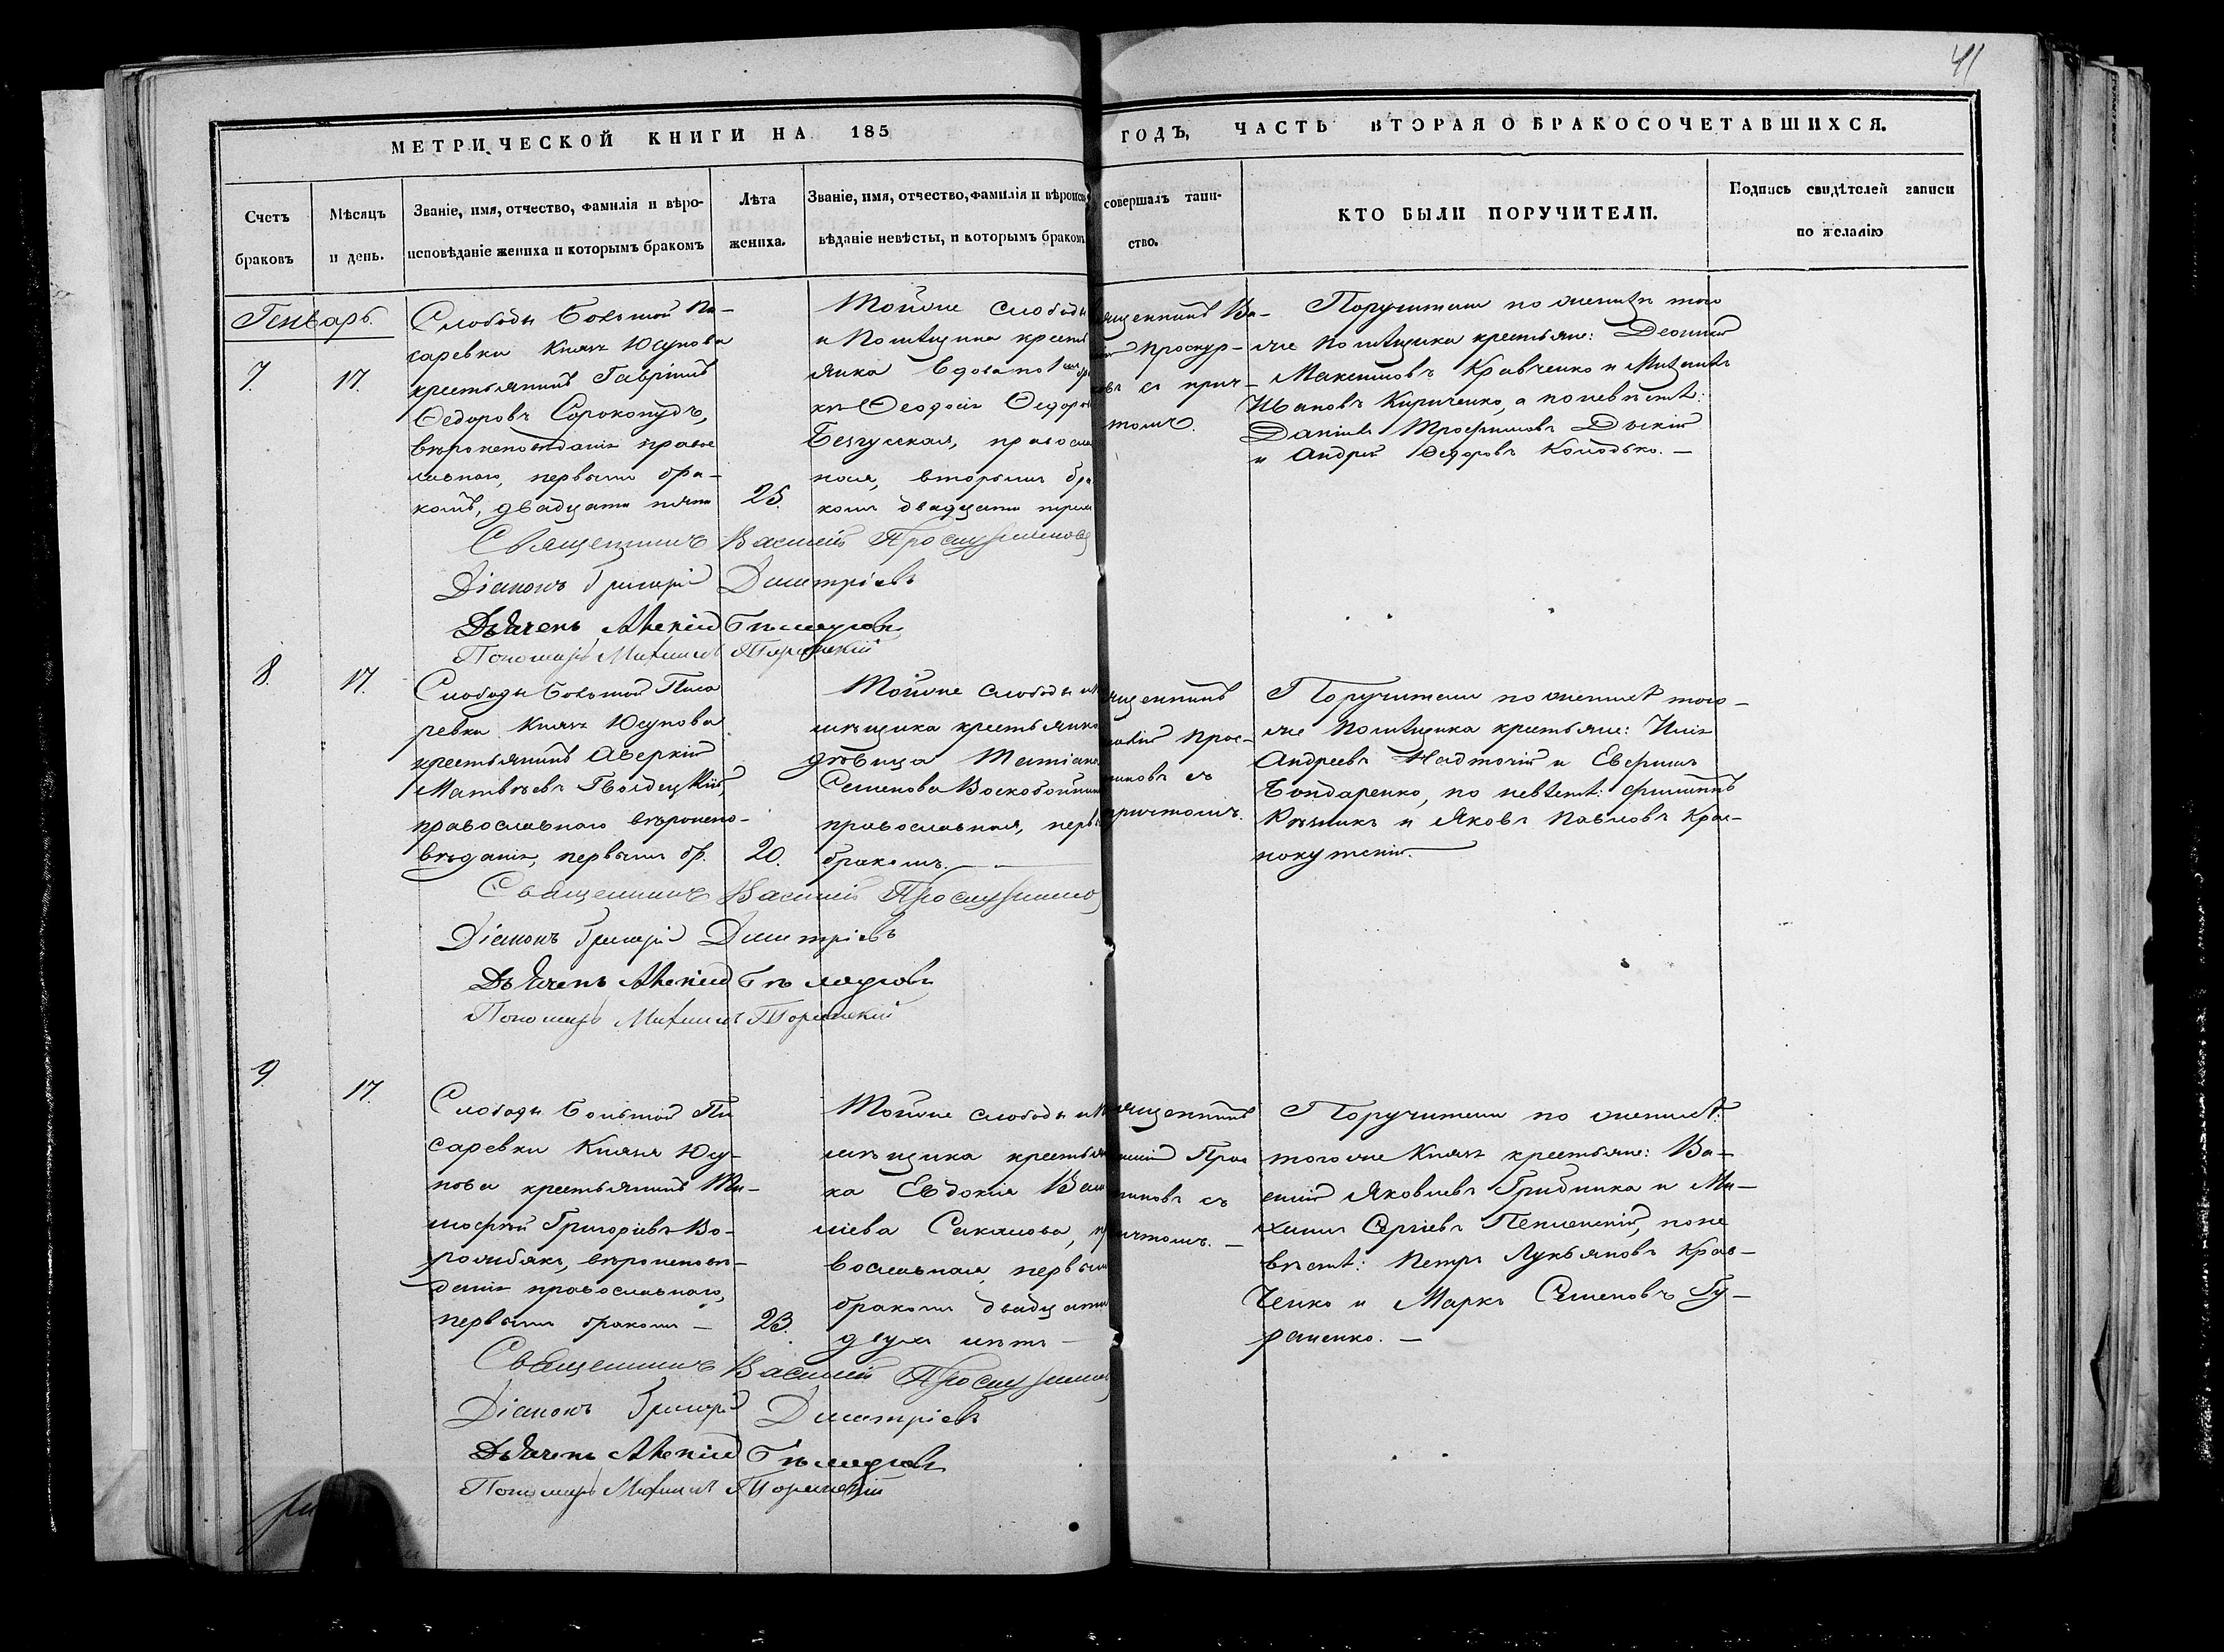 41
МЕТРИЧЕСКОЙ КНИГИ НА 185
ГОДЪ, ЧАСТЬ ВТОРАЯ О БРАКОСОЧЕТАВШИХСЯ.
Счетъ браковъ
Мѣсяцъ и день.
Званіе, имя, отчество, фамилія и вѣро-
исповѣданіе жениха и которымъ бракомъ
Лѣта жениха.
Званіе, имя, отчество, фамилія и вѣроиспо
вѣданіе невѣсты, и которымъ бракомъ
совершалъ таин-
ство.
КТО БЫЛИ ПОРУЧИТЕЛИ.
Подпись свидѣтелей записи
по желанію
Генварь.
7.
17.
Слободы Большой Пи-
саревки Князя Юсупова
крестьянинъ Гавріилъ
Ѳедоровъ Сорокопудъ,
вѣроисповѣданія право
славнаго, первымъ бра-
комъ, двадцати пяти
25.
Тойже слободы
и Помѣщика кресть
янка вдова по 1
ка Ѳеодосія Ѳедоро
правосла
ная, вторымъ бра
комъ двадцати трехъ
ященникъ Ва-
Проскур-
ковъ съ прич-
томъ.
Поручители по женихѣ того
же Помѣщика крестьяне:
Максимовъ Кравченко и
Ивановъ Кириченко, а по невѣстѣ:
Даніилъ Трофимовъ
и Андрей Ѳедоровъ Колодько.
Священникъ Василій
Діаконъ Григорій Димитріевъ
Дьячекъ
Пономарь Михаилъ
8.
17.
Слободы Большой Писа
ревки Князя Юсупова
крестьянинъ Аверкій
Матвѣевъ
православнаго вѣроиспо-
вѣданія, первымъ бр.
20.
Тойже слободы и
мѣщика крестьянка
дѣвица Татіана
Семенова Воскобойник
православная, перв
бракомъ.
ященникъ
Прос-
никовъ съ
причтомъ.
Поручители по женихѣ того-
же Помѣщика крестьяне: Илія
Андреевъ Надточій и
Бондаренко, по невѣстѣ: Филиппъ
Рѣзникъ и Яковъ Павловъ Крас-
нокутскій.
Священникъ Василій
Діаконъ Григорій Димитріевъ
Дьячекъ
Пономарь Михаилъ
9.
17.
Слободы Большой Пи
саревки Князя Юсу-
пова крестьянинъ Ти-
мофей Григорьевъ Во-
рожбякъ, вѣроисповѣ-
данія православнаго,
первымъ бракомъ
23.
Тойже слободы и
мѣщика крестьян
ка Евдокія Васи
ліева Сакалова,
вославная, первымъ
бракомъ двадцати
двухъ лѣтъ
ященникъ
Прос
никовъ съ
ичтомъ.
Поручители по женихѣ:
тогоже Князя крестьяне: Ва-
силій Яковлевъ Грибника и Ми-
хаилъ Сергіевъ по не
вѣстѣ: Петръ Лукьяновъ Крав-
ченко и Маркъ Семеновъ Гу-
раненко.
Священникъ Василій
Діаконъ Григорій Димитріевъ
Дьячекъ
Пономарь Михаилъ